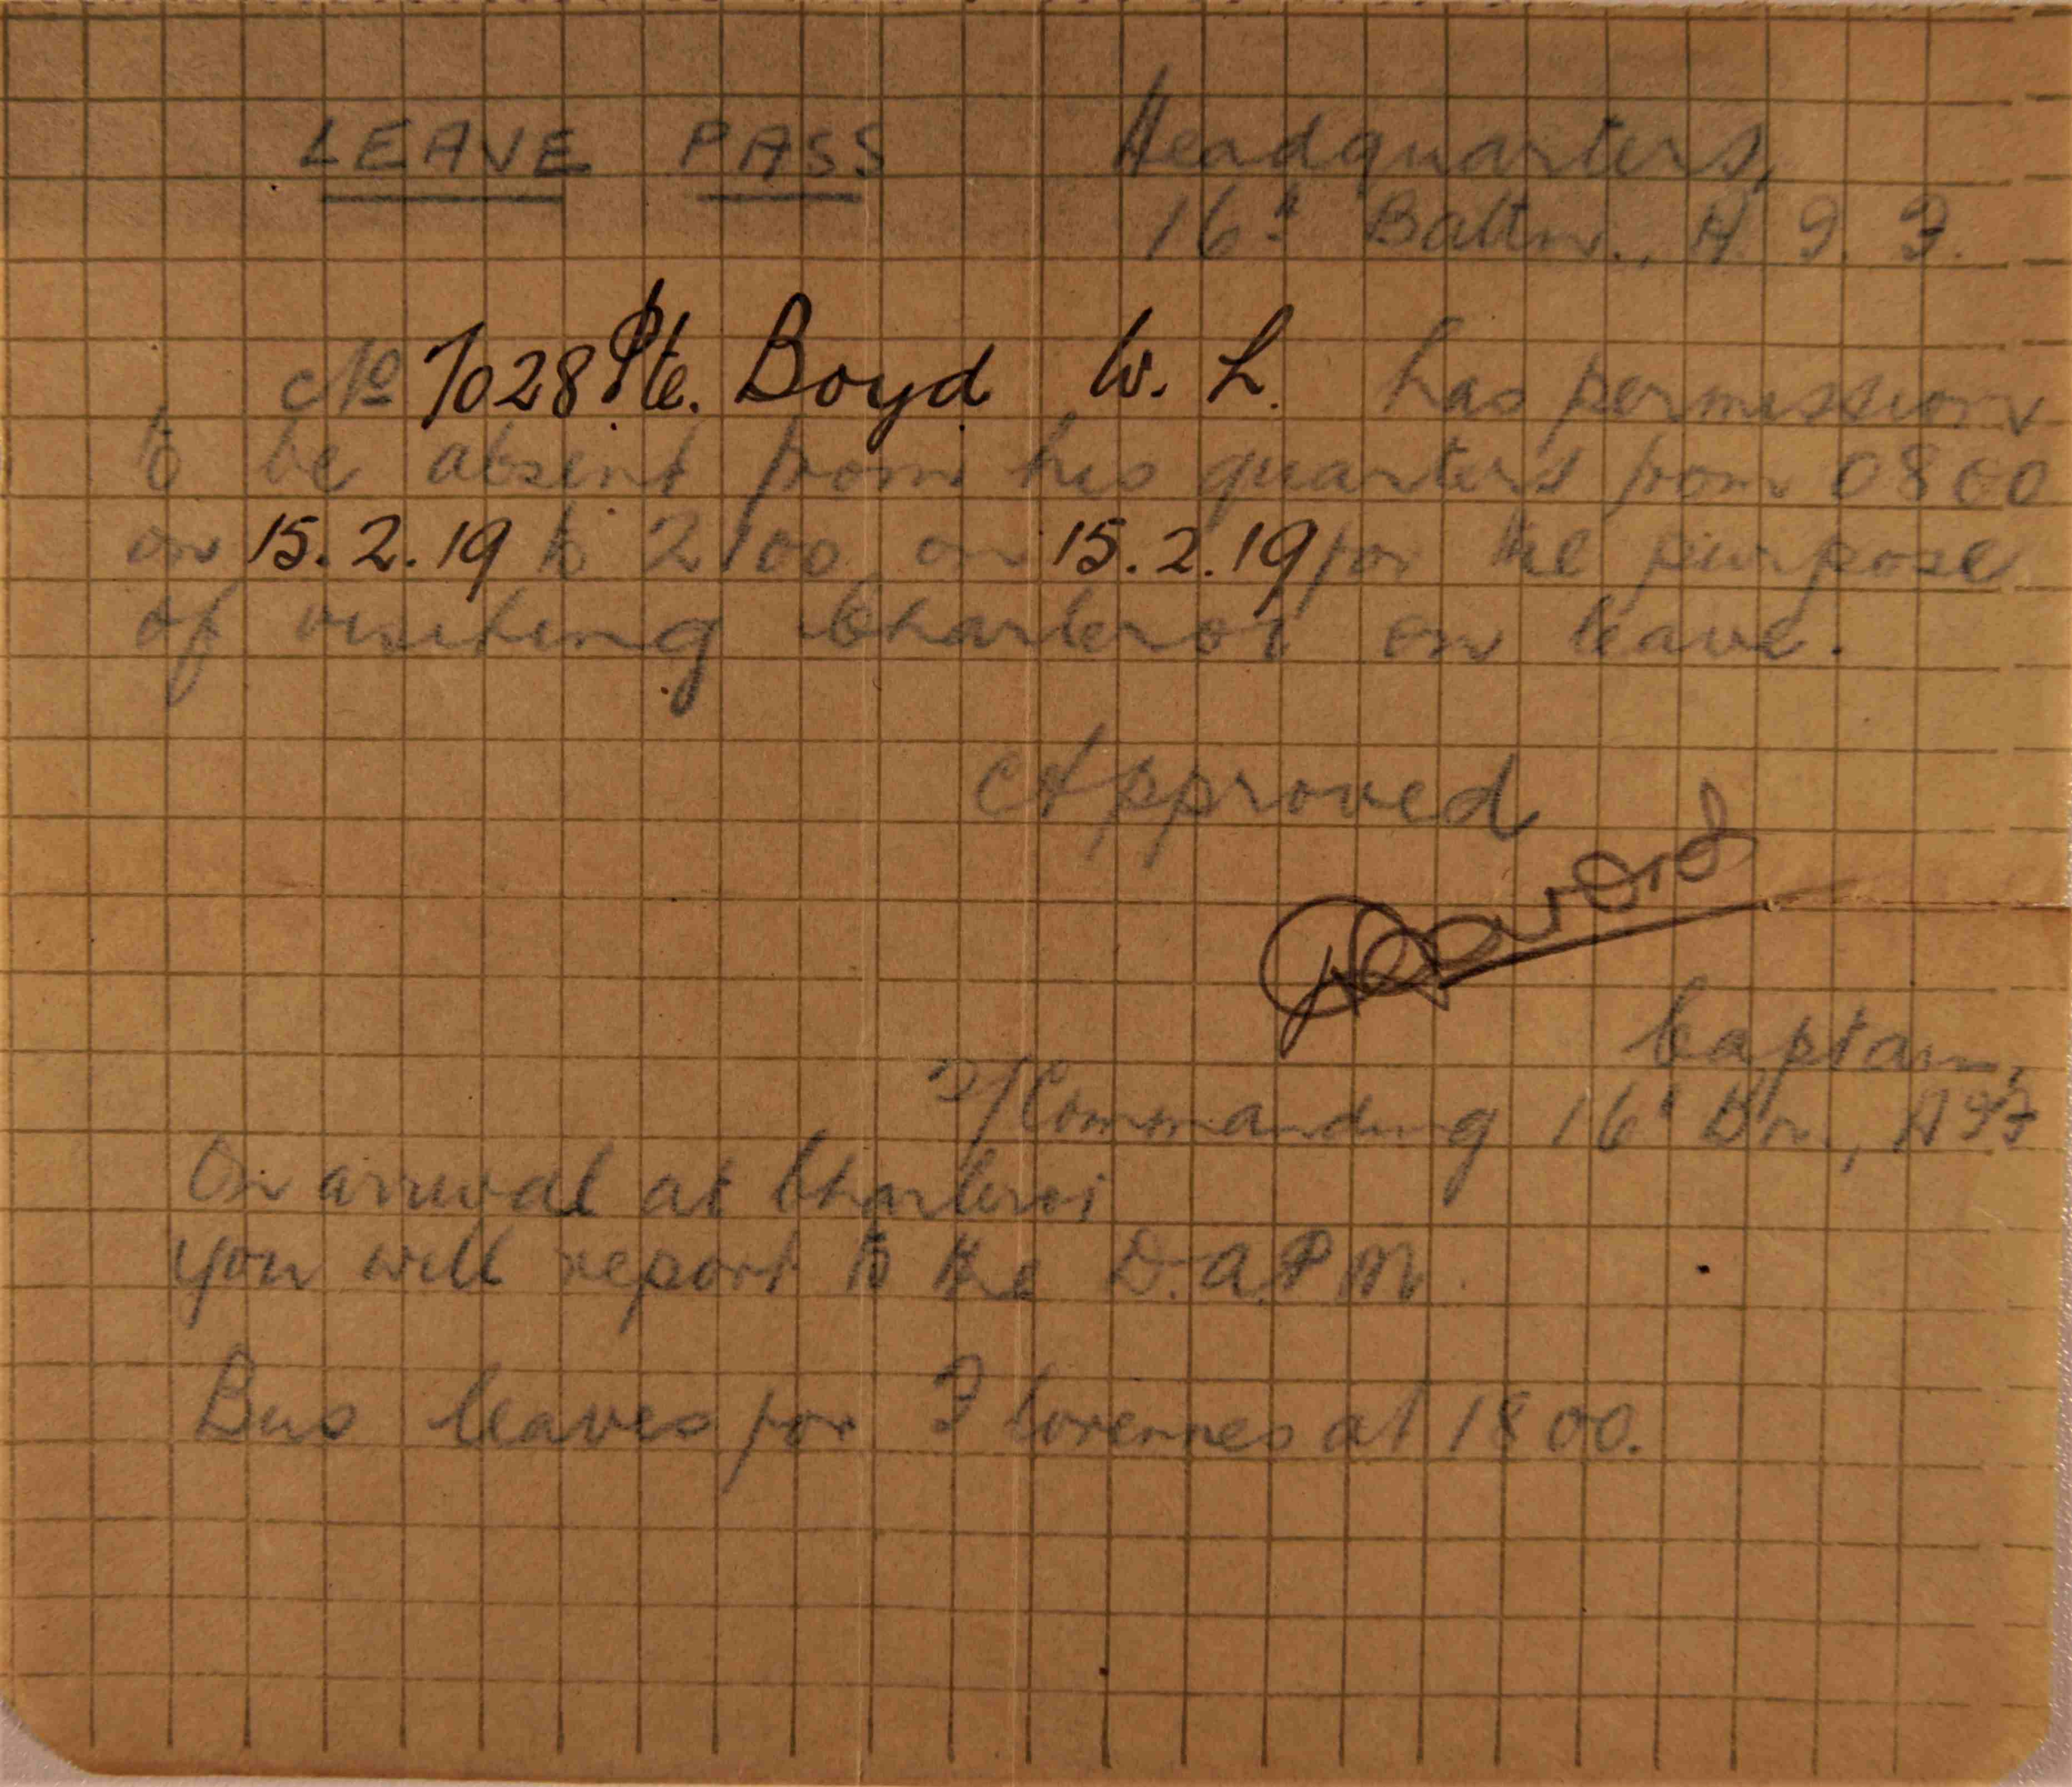 LEAVE PASS
Headquarters,
16th Battn., A. I. F.
No 7028 Pte. Boyd W. L. has permission
to be absent from his quarters from 0800
on 15.2.19 to 2100 on 15.2.19 for the purpose
of visiting Charleroi on leave.
Approved
Captain,
Commanding 16th Bn., AIF
On arrival at Charleroi
you will report to the D.A.P.M.
Bus leaves for Florennes at 1800.